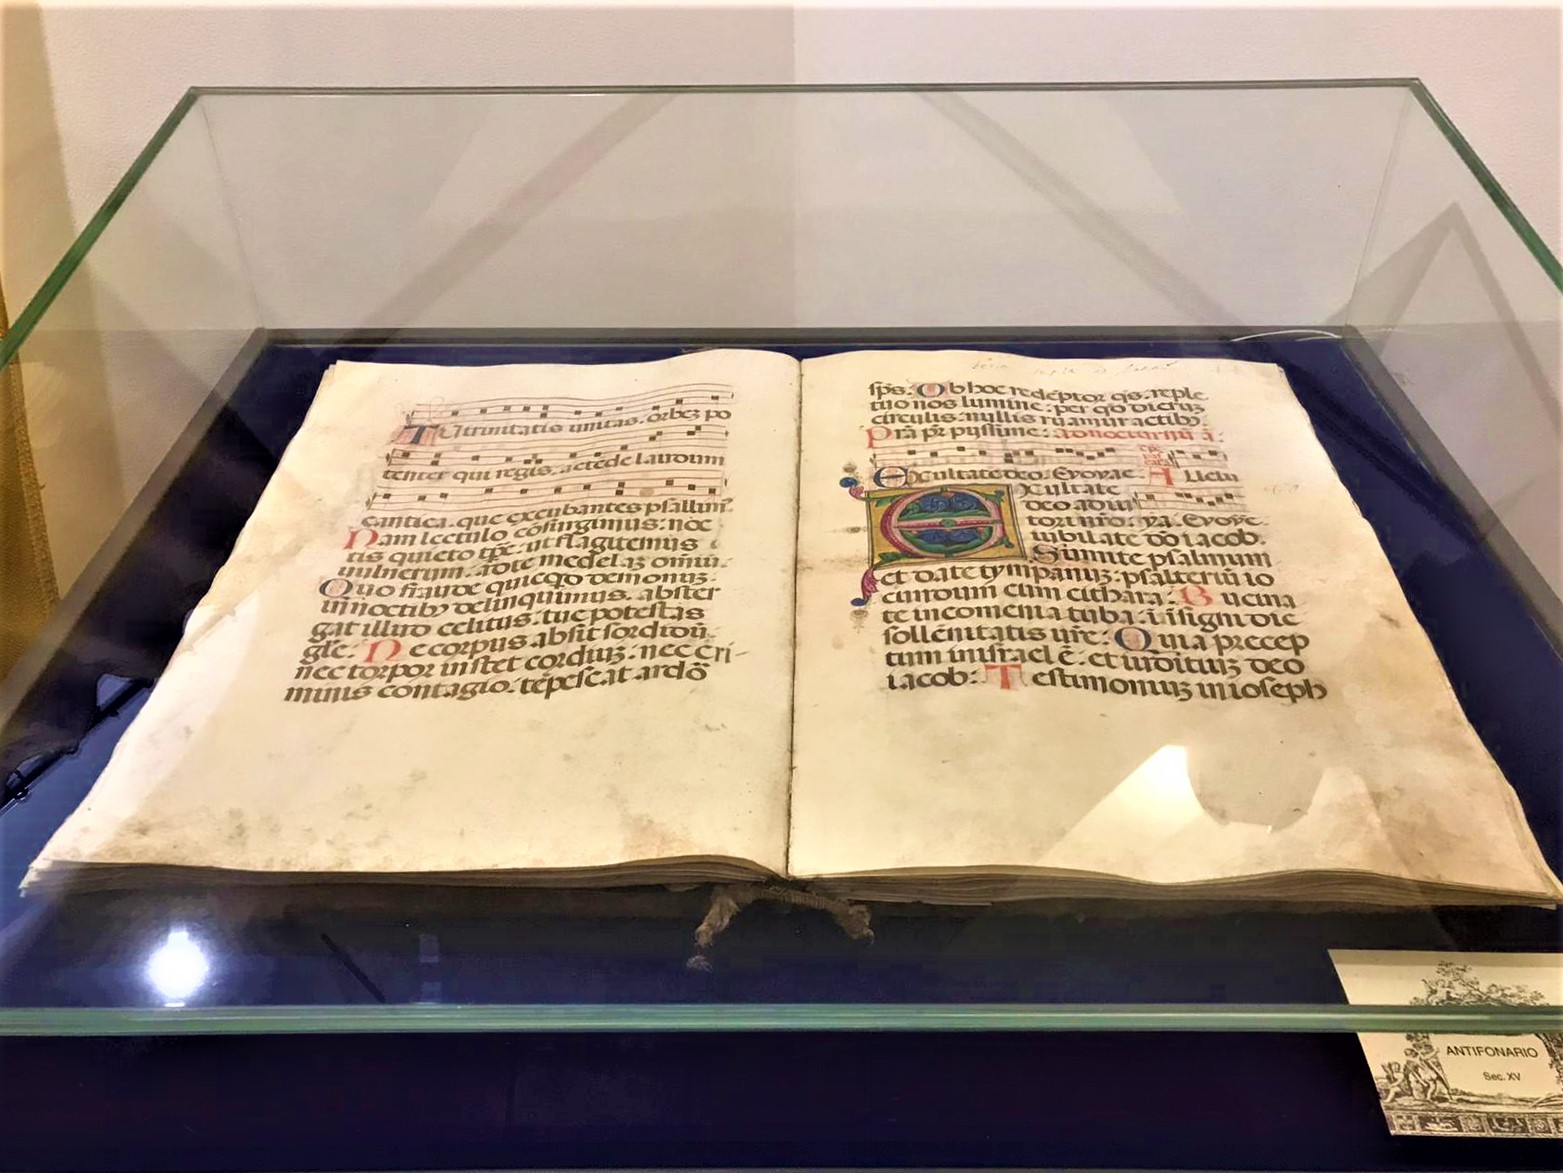 Tu trinitatis unitas. orbez po
tenter qui regis. actede laudum
cantica. que excubantes psallim9.
Nam lectulo cōsurgimus: noc
tis quieto tpe: ut flagitemus
uulnerum. a dte medelaz omiū.
Quo fraude quicqd demonuz.
in noctib9 delinquimus. abster
gat illud celitus: tue potestas
gle. Ne corpus absit sordidū.
nec torpor instet cordiuz: nec cri-
minis contagio. tepescat ardō
sps. Ob hoc redēptor qs. reple
tuo nos lumine: per qd dieruz
circulis. nullis ruamur actib9.
Pra pr pyssime: ad nocturnū a.
Exultate deo. Evovae. Alleiu
Exultate
deo adiu
tori nro. ps. Evove.
iubilate do iacob.
Sumite psalmum
et date tympanuz: psalteriū io
cundum cum cithara: Bucina
te in comenia tuba: i isigni die
sollēnitatis ure: Quia precep
tum in israel ē: et iudituz deo
iacob: Testimoniuz in ioseph
ANTIFONARIO
Sec. XV